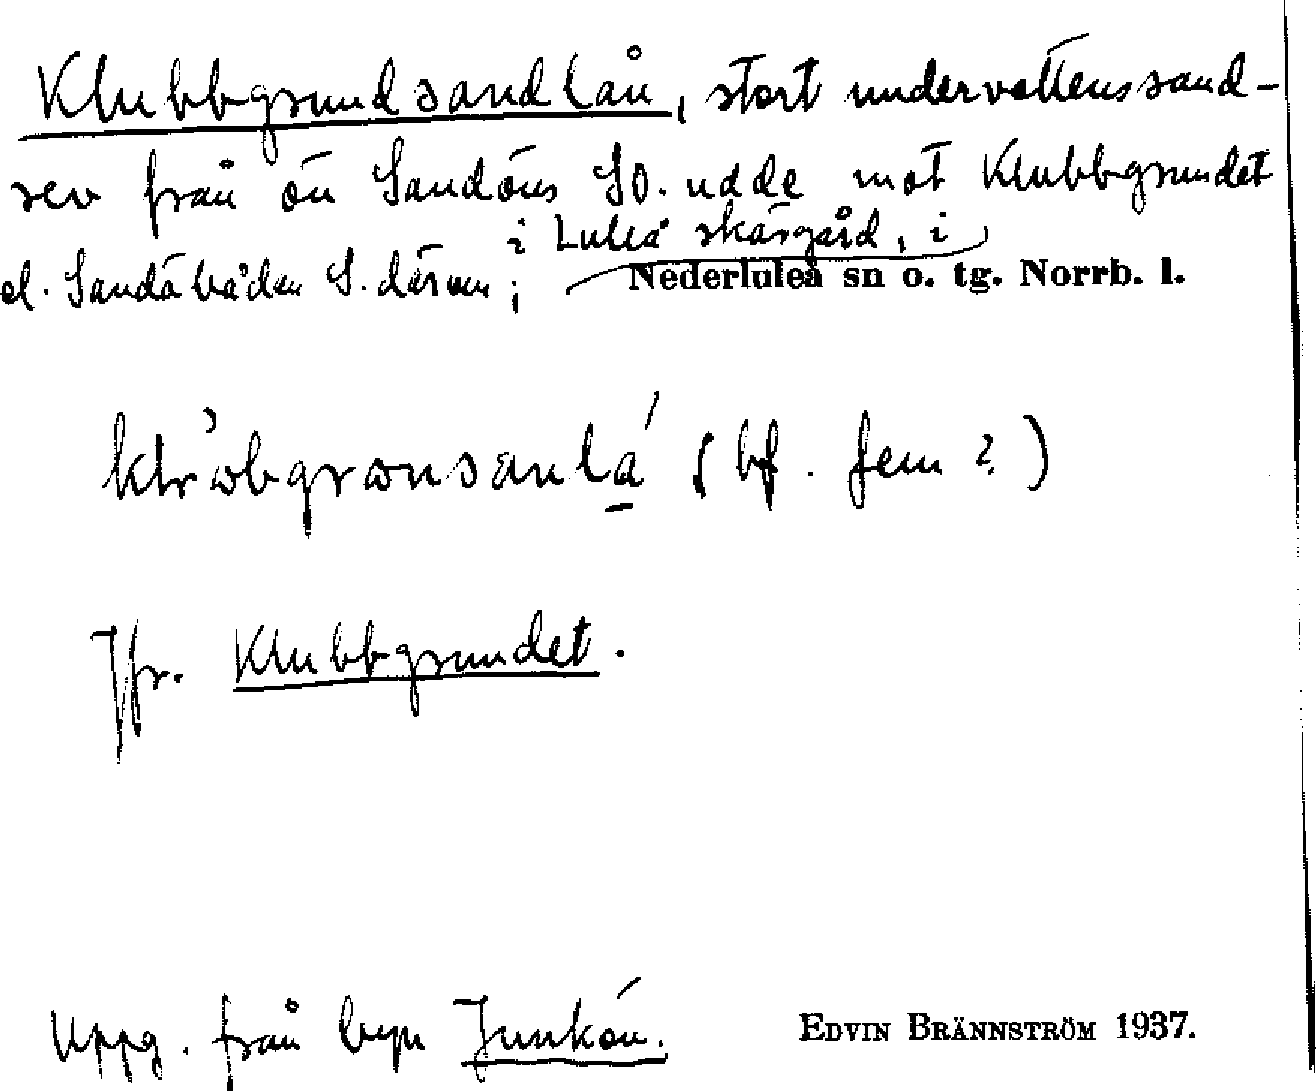 Klubbgrundsandlån, stort undervattenssand-
rev från ön Sandöns SO. udde mot Klubbgrundet
el. Sandäbåden S. därom; i Luleå skärgård, i
Nederluleå sn o. tg. Norrb. l.
(bf. fem?)
Jfr. Klubbgrundet.
Uppg. från byn Junkön.
EDVIN BRÄNNSTRÖM 1937.